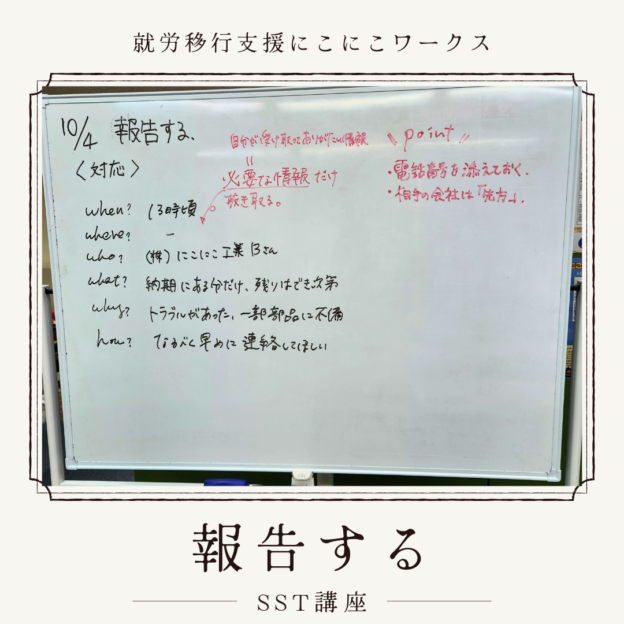 就労移行支援にこにこワークス
10/4 報告する、
〈対応〉
自分が受け取ってありがたい情報
||
必要な情報だけ
抜き取る。
\\ point //
・電話番号を添えておく.
・相手の会社は「先方」.
when? 13時頃
where? ー
who? (株)にこにこ工業 Bさん
what? 納期にある分だけ、残りはでき次第
why? トラブルがあった、一部部品に不備
how? なるべく早めに連絡してほしい
報告する
SST講座